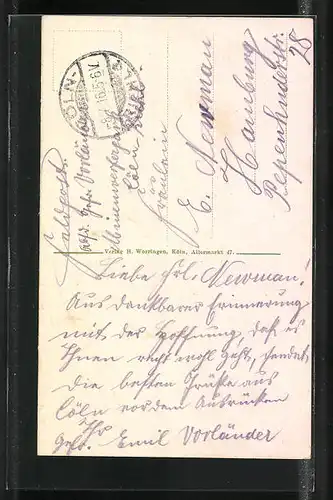 Feldpost.
Abs. Gefr. Vorländer
Cöln
CÖLN
5-6V.
Fräulein
E. Newman
Hamburg
Papenhuderstr.
28
Verlag H. Worringen, Köln, Altermarkt 47.
Liebe Frl. Newman!
Aus dankbarer Erinnerung
mit der Hoffnung, daß es
Ihnen recht wohl geht, sendet
die besten Grüße aus
Cöln vor dem Ausrücken
Ihr
Gefr. Emil Vorländer